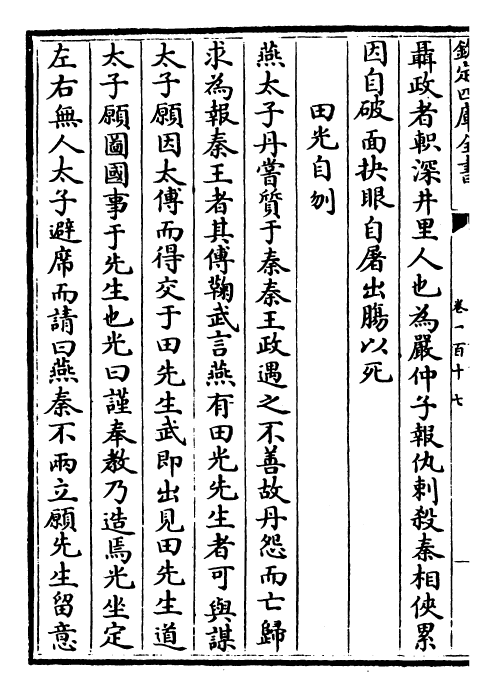 欽定四庫全書
卷一百十七
聶政者軹深井里人也為嚴仲子報仇刺殺秦相俠累
因自破面抉眼自屠出腸以死
田光自刎
燕太子丹嘗質于秦秦王政遇之不善故丹怨而亡歸
求為報秦王者其傅鞠武言燕有田光先生者可與謀
太子願因太傅而得交于田先生武即出見田先生道
太子願圖國事于先生也光曰謹奉教乃造焉光坐定
左右無人太子避席而請曰燕秦不兩立願先生留意